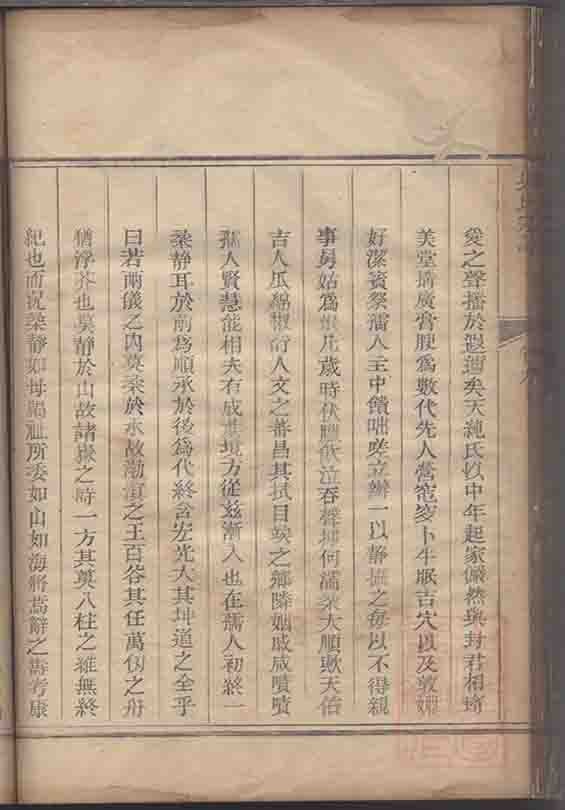 愛之聲播於遐邇矣夫純氏以中年起家儼然與封君相埒
美堂搆廣膏腴為數代先人營窀穸卜牛眠吉穴以及敦姻
好潔賓祭孺人主中饋咄嗟立辦一以靜協之每以不得親
事舅姑為恨凡歲時伏臘飲泣吞聲何濡柔大順歟天佑
吉人瓜綿椒衍人文之蕃昌其拭目俟之鄉隣姻戚咸嘖嘖
孺人賢慧能相夫有成蔗境方從茲漸入也在孺人初終一
柔靜耳於前為順承於後為代終含宏光大其坤道之全乎
曰若兩儀之內莫柔於水故渤溟之王百谷其任萬仞之舟
猶浮芥也莫靜於山故諸嶽之峙一方其奠八柱之維無終
紀也而況柔靜如母陽祉所委如山如海將蔿辭之壽考康